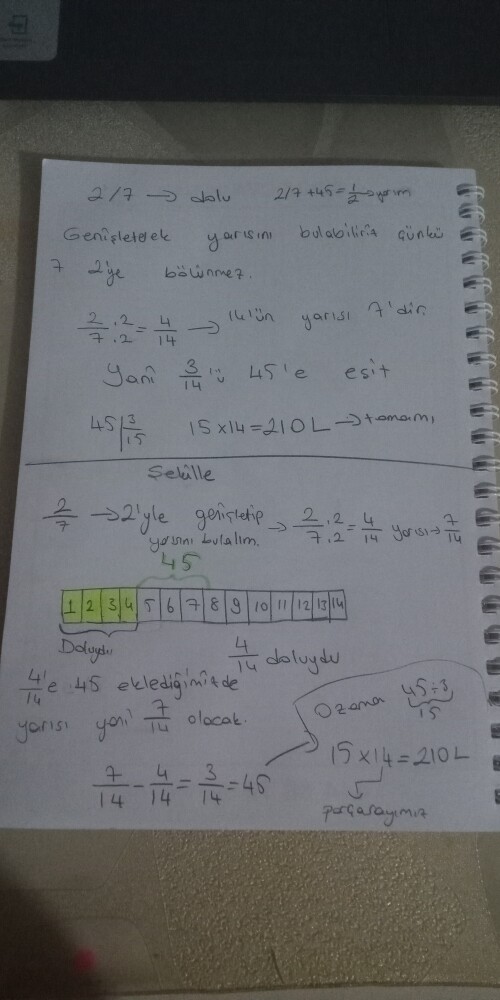 2/7 → dolu 2/7 + 45 = 1/2 → yarım
Genişleterek yarısını bulabiliriz çünkü
7 2'ye bölünmez.
2/7 .2/.2 = 4/14 → 14'ün yarısı 7'dir.
Yani 3/14'ü 45'e eşit
45 | 3/15 15 x 14 = 210 L → tamamı
Şekille
2/7 → 2'yle genişletip yarısını bulalım. → 2/7 .2/.2 = 4/14 yarısı → 7/14
45
1 2 3 4 5 6 7 8 9 10 11 12 13 14
Doluydu
4/14 doluydu
4/14'e 45 eklediğimizde
yarısı yani 7/14 olacak.
7/14 - 4/14 = 3/14 = 45
O zama 45÷3
15
15 x 14 = 210 L